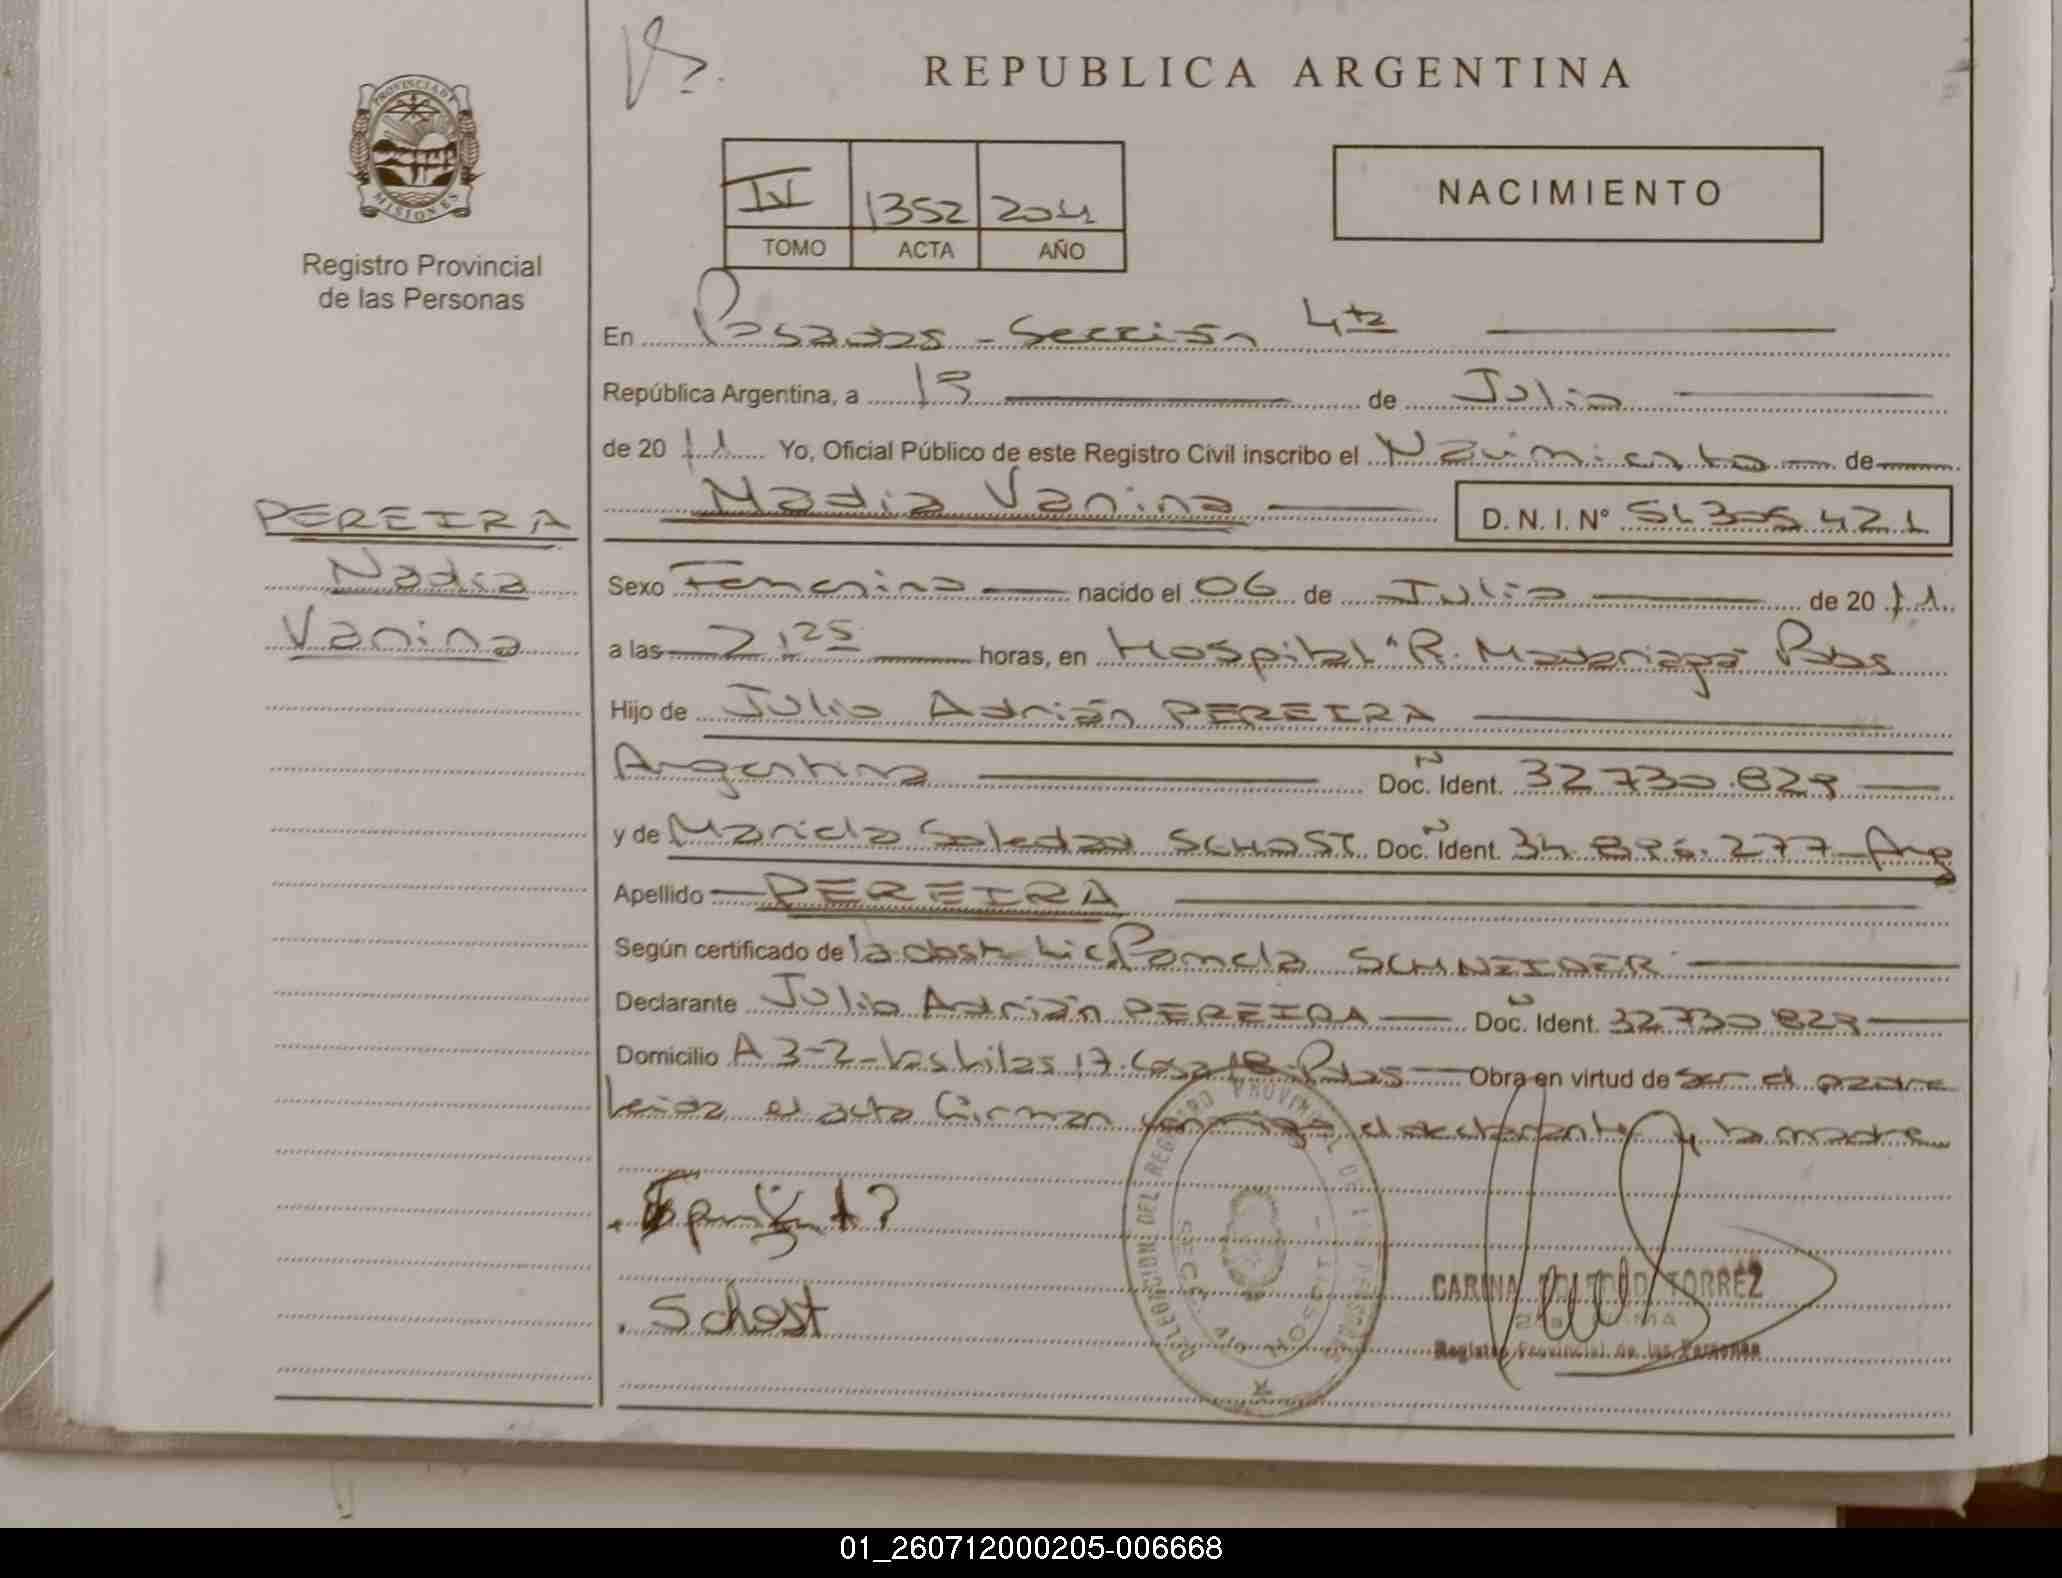 REPUBLICA ARGENTINA
PROVINCIA DE MISIONES
Registro Provincial
de las Personas
IV 1352 2011
TOMO ACTA AÑO
NACIMIENTO
En Posadas - Sección 4ta
República Argentina, a 19 de Julio
de 20 11 Yo, Oficial Público de este Registro Civil inscribo el Nacimiento de
Nadia Vanina D. N. I. N° 51.306.421
PEREIRA
Nadia
Vanina
Sexo Femenino nacido el 06 de Julio de 20 11
a las 2,25 horas, en Hospital "R. Madariaga" Pdas
Hijo de Julio Adrián PEREIRA
Argentino Doc. Ident. 32.730.829
y de Mariela Soledad SCHOST Doc. Ident. 34.896.277 Arg
Apellido PEREIRA
Según certificado de la obst. Lic. Pamela SCHNEIDER
Declarante Julio Adrián PEREIRA Doc. Ident. 32.730.829
Domicilio A 3-2 - Las Lilas 17. Casa 18 Pdas Obra en virtud de ser el padre
Leida el acta firman conmigo el declarante y la madre
Schost
DELEGACION DEL REGISTRO PROVINCIAL DE LAS PERSONAS
CARINA TORREZ
Registro Provincial de las Personas
01_260712000205-006668